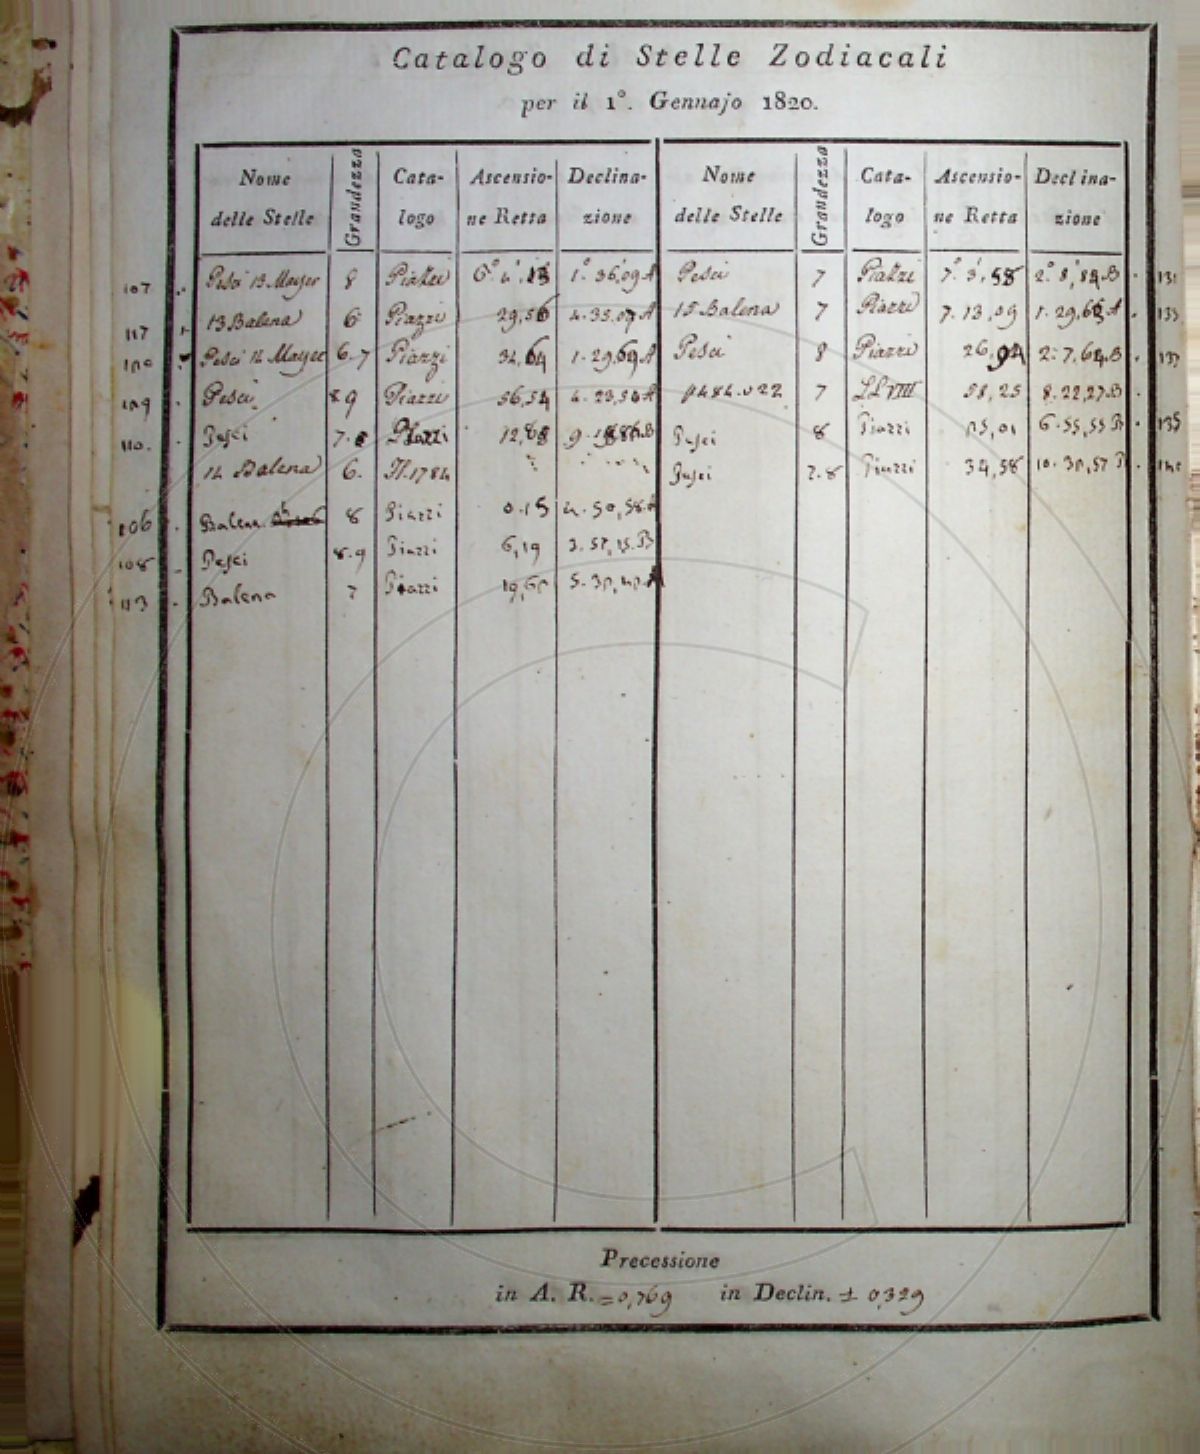 Catalogo di Stelle Zodiacali
per il 1°. Gennajo 1820.
Nome delle Stelle Grandezza Catalogo Ascensione Retta Declinazione Nome delle Stelle Grandezza Catalogo Ascensione Retta Declinazione
107 Pesci 13 Mayer 8 Piazzi 1° 36,09 A Pesci 7 Piazzi 7° 3,58
117 13 Balena 6 Piazzi 29,56 4. 35,07 A 15 Balena 7 Piazzi 7. 13,09 1. 29,66 A
Pesci 14 Mayer 6-7 Piazzi 34,64 1. 29,69 A Pesci 8 Piazzi 26,94 2. 7,64 B
109 Pesci 8 9 Piazzi 56,54 4. 23,50 A 7 LL VIII 58,25 8. 22,27 B
110. Pesci 7. 8 Piazzi 12,88 Pesci 8 Piazzi 6. 55,55 B 135
14 Balena 6. Pesci 7. 8 Piazzi 34,58
106 Balena 8 Piazzi 0. 15 4. 50,58 A
108 Pesci 8. 9 Piazzi 6,19 3. 57,15 B
113 Balena 7 Piazzi
Precessione
in A. R. = 0,769 in Declin. ± 0,329